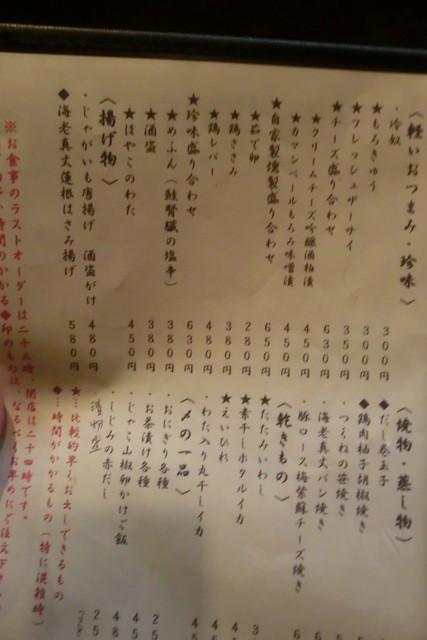 〈軽いおつまみ・珍味〉
・冷奴 300円
★もろきゅう 300円
★フレッシュザーサイ 350円
★チーズ盛り合わせ 630円
★クリームチーズ吟醸酒粕漬 450円
★カマンベールもろみ味噌漬 450円
★自家製燻製盛り合わせ 650円
★茹で卵 280円
★鶏ささみ 380円
★鶏レバー 480円
★珍味盛り合わせ 630円
★めふん（鮭腎臓の塩辛） 380円
★酒盗 380円
★ほやこのわた 450円
〈揚げ物〉
・じゃがいも唐揚げ 酒盗がけ 480円
◆海老真丈蓮根はさみ揚げ 580円
〈焼物・蒸し物〉
◆だし巻玉子
◆鶏肉柚子胡椒焼き
・つくねの笹焼き
・海老真丈パン焼き
・豚ロース梅紫蘇チーズ焼き
〈乾きもの〉
★たたみいわし
★素干しホタルイカ
★えいひれ
・わた入り丸干しイカ
〈〆の一品〉
・おにぎり各種
・お茶漬け各種
・じゃこ山椒卵かけご飯
・しじみの赤だし
・漬物盛
★…比較的早くお出しできるもの
◆…時間がかかるもの（特に混雑時）
※お食事のラストオーダーは二十三時、閉店は二十四時です。
時間のかかる◆印のものは、なるべくお早めにご注文下さい